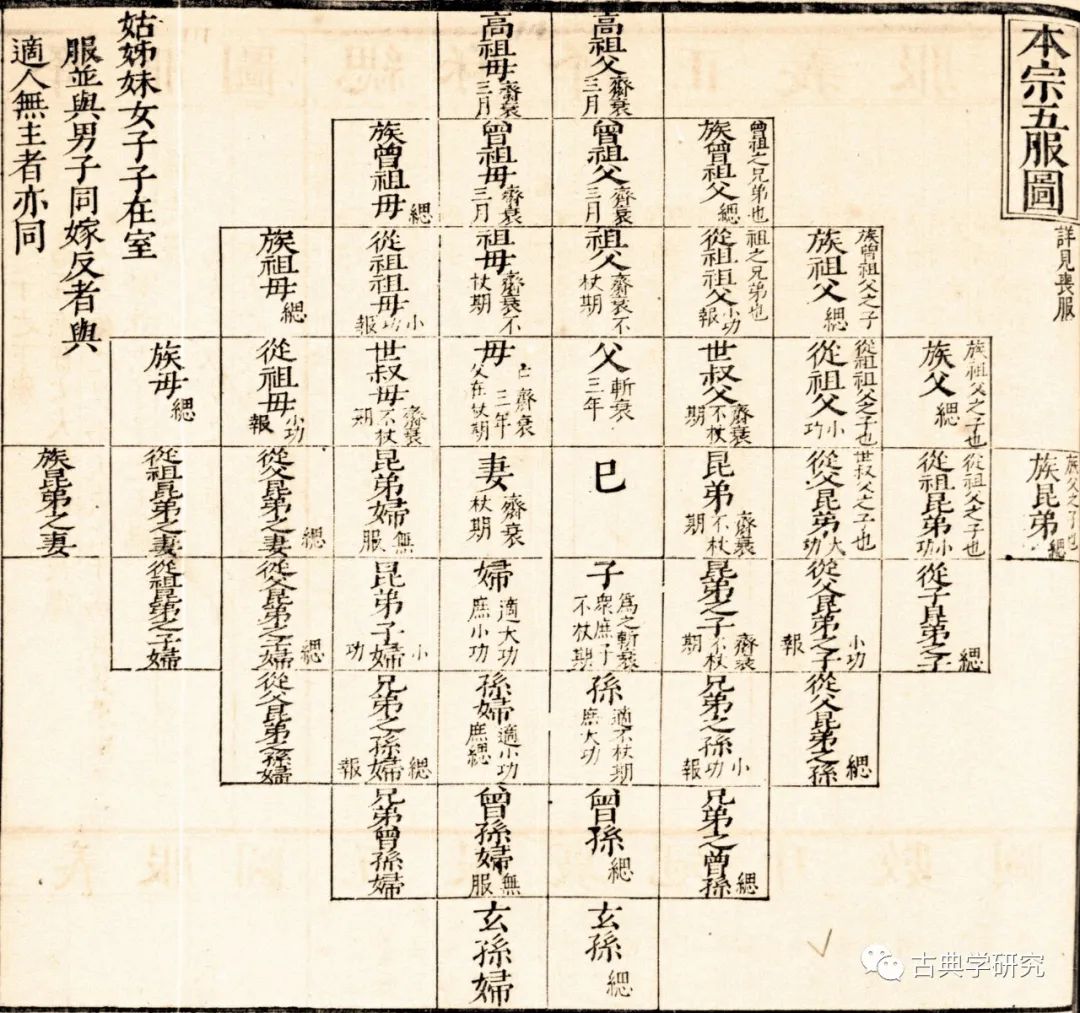 本宗五服圖
詳見喪服
高祖父 齊衰三月
高祖母 齊衰三月
曾祖之兄弟也
族曾祖父 緦
曾祖父 齊衰三月
曾祖母 齊衰三月
族曾祖母 緦
族曾祖父之子
族祖父 緦
祖之兄弟也
從祖祖父 小功報
祖父 齊衰不杖期
祖母 齊衰不杖期
從祖祖母 小功報
族祖母 緦
族祖父之子也
族父 緦
從祖祖父之子也
從祖父 小功
世叔父 齊衰不杖期
父 斬衰三年
母 齊衰三年父在杖期
世叔母 齊衰不杖期
從祖母 小功報
族母 緦
族父之子也
族昆弟 緦
從祖父之子也
從祖昆弟 小功
世叔父之子也
從父昆弟 大功
昆弟 齊衰不杖期
巳
妻 齊衰杖期
昆弟婦 無服
從父昆弟之妻 緦
從祖昆弟之妻
族昆弟之妻
從子昆弟之子 緦
從父昆弟之子 小功報
昆弟之子 齊衰不杖期
子 為之斬衰衆庶子不杖期
婦 適大功庶小功
昆弟子婦 小功
從父昆弟之子婦 緦
從祖昆弟之子婦
從父昆弟之孫 緦
兄弟之孫 小功報
孫 適不杖期庶大功
孫婦 適小功庶緦
兄弟之孫婦 緦報
從父昆弟之孫婦
兄弟之曾孫 緦
曾孫 緦
曾孫婦 無服
兄弟曾孫婦
玄孫 緦
玄孫婦
姑姊妹女子子在室
服並與男子同嫁反者與
適人無主者亦同
古典学研究